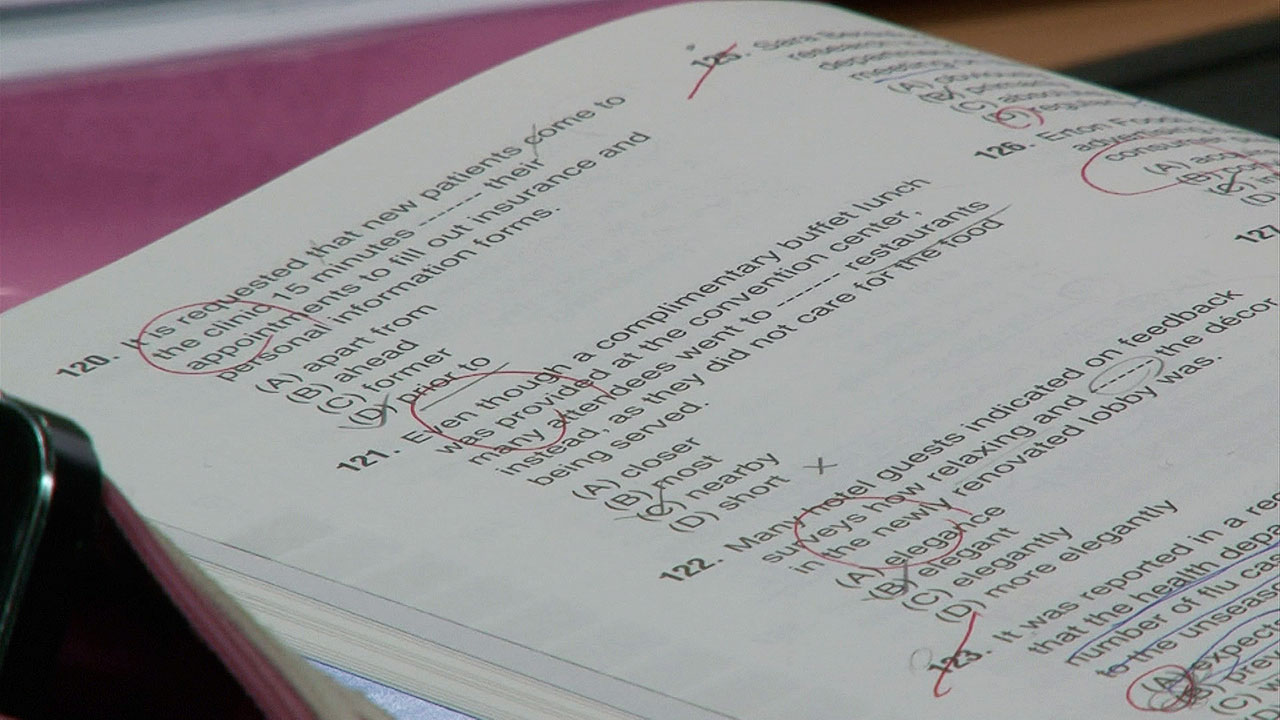 120. It is requested that new patients come to
the clinic 15 minutes ------- their
appointments to fill out insurance and
personal information forms.
(A) apart from
(B) ahead
(C) former
(D) prior to
121. Even though a complimentary buffet lunch
was provided at the convention center,
many attendees went to ------- restaurants
instead, as they did not care for the food
being served.
(A) closer
(B) most
(C) nearby
(D) short
122. Many hotel guests indicated on feedback
surveys how relaxing and ------- the décor
in the newly renovated lobby was.
(A) elegance
(B) elegant
(C) elegantly
(D) more elegantly
123. It was reported in a
that the health
number of flu
to the
(A)
(B)
(C)
125. Sara
meeting
(A)
(B)
(C)
(D)
126.
(A)
(B)
(C)
(D)
127